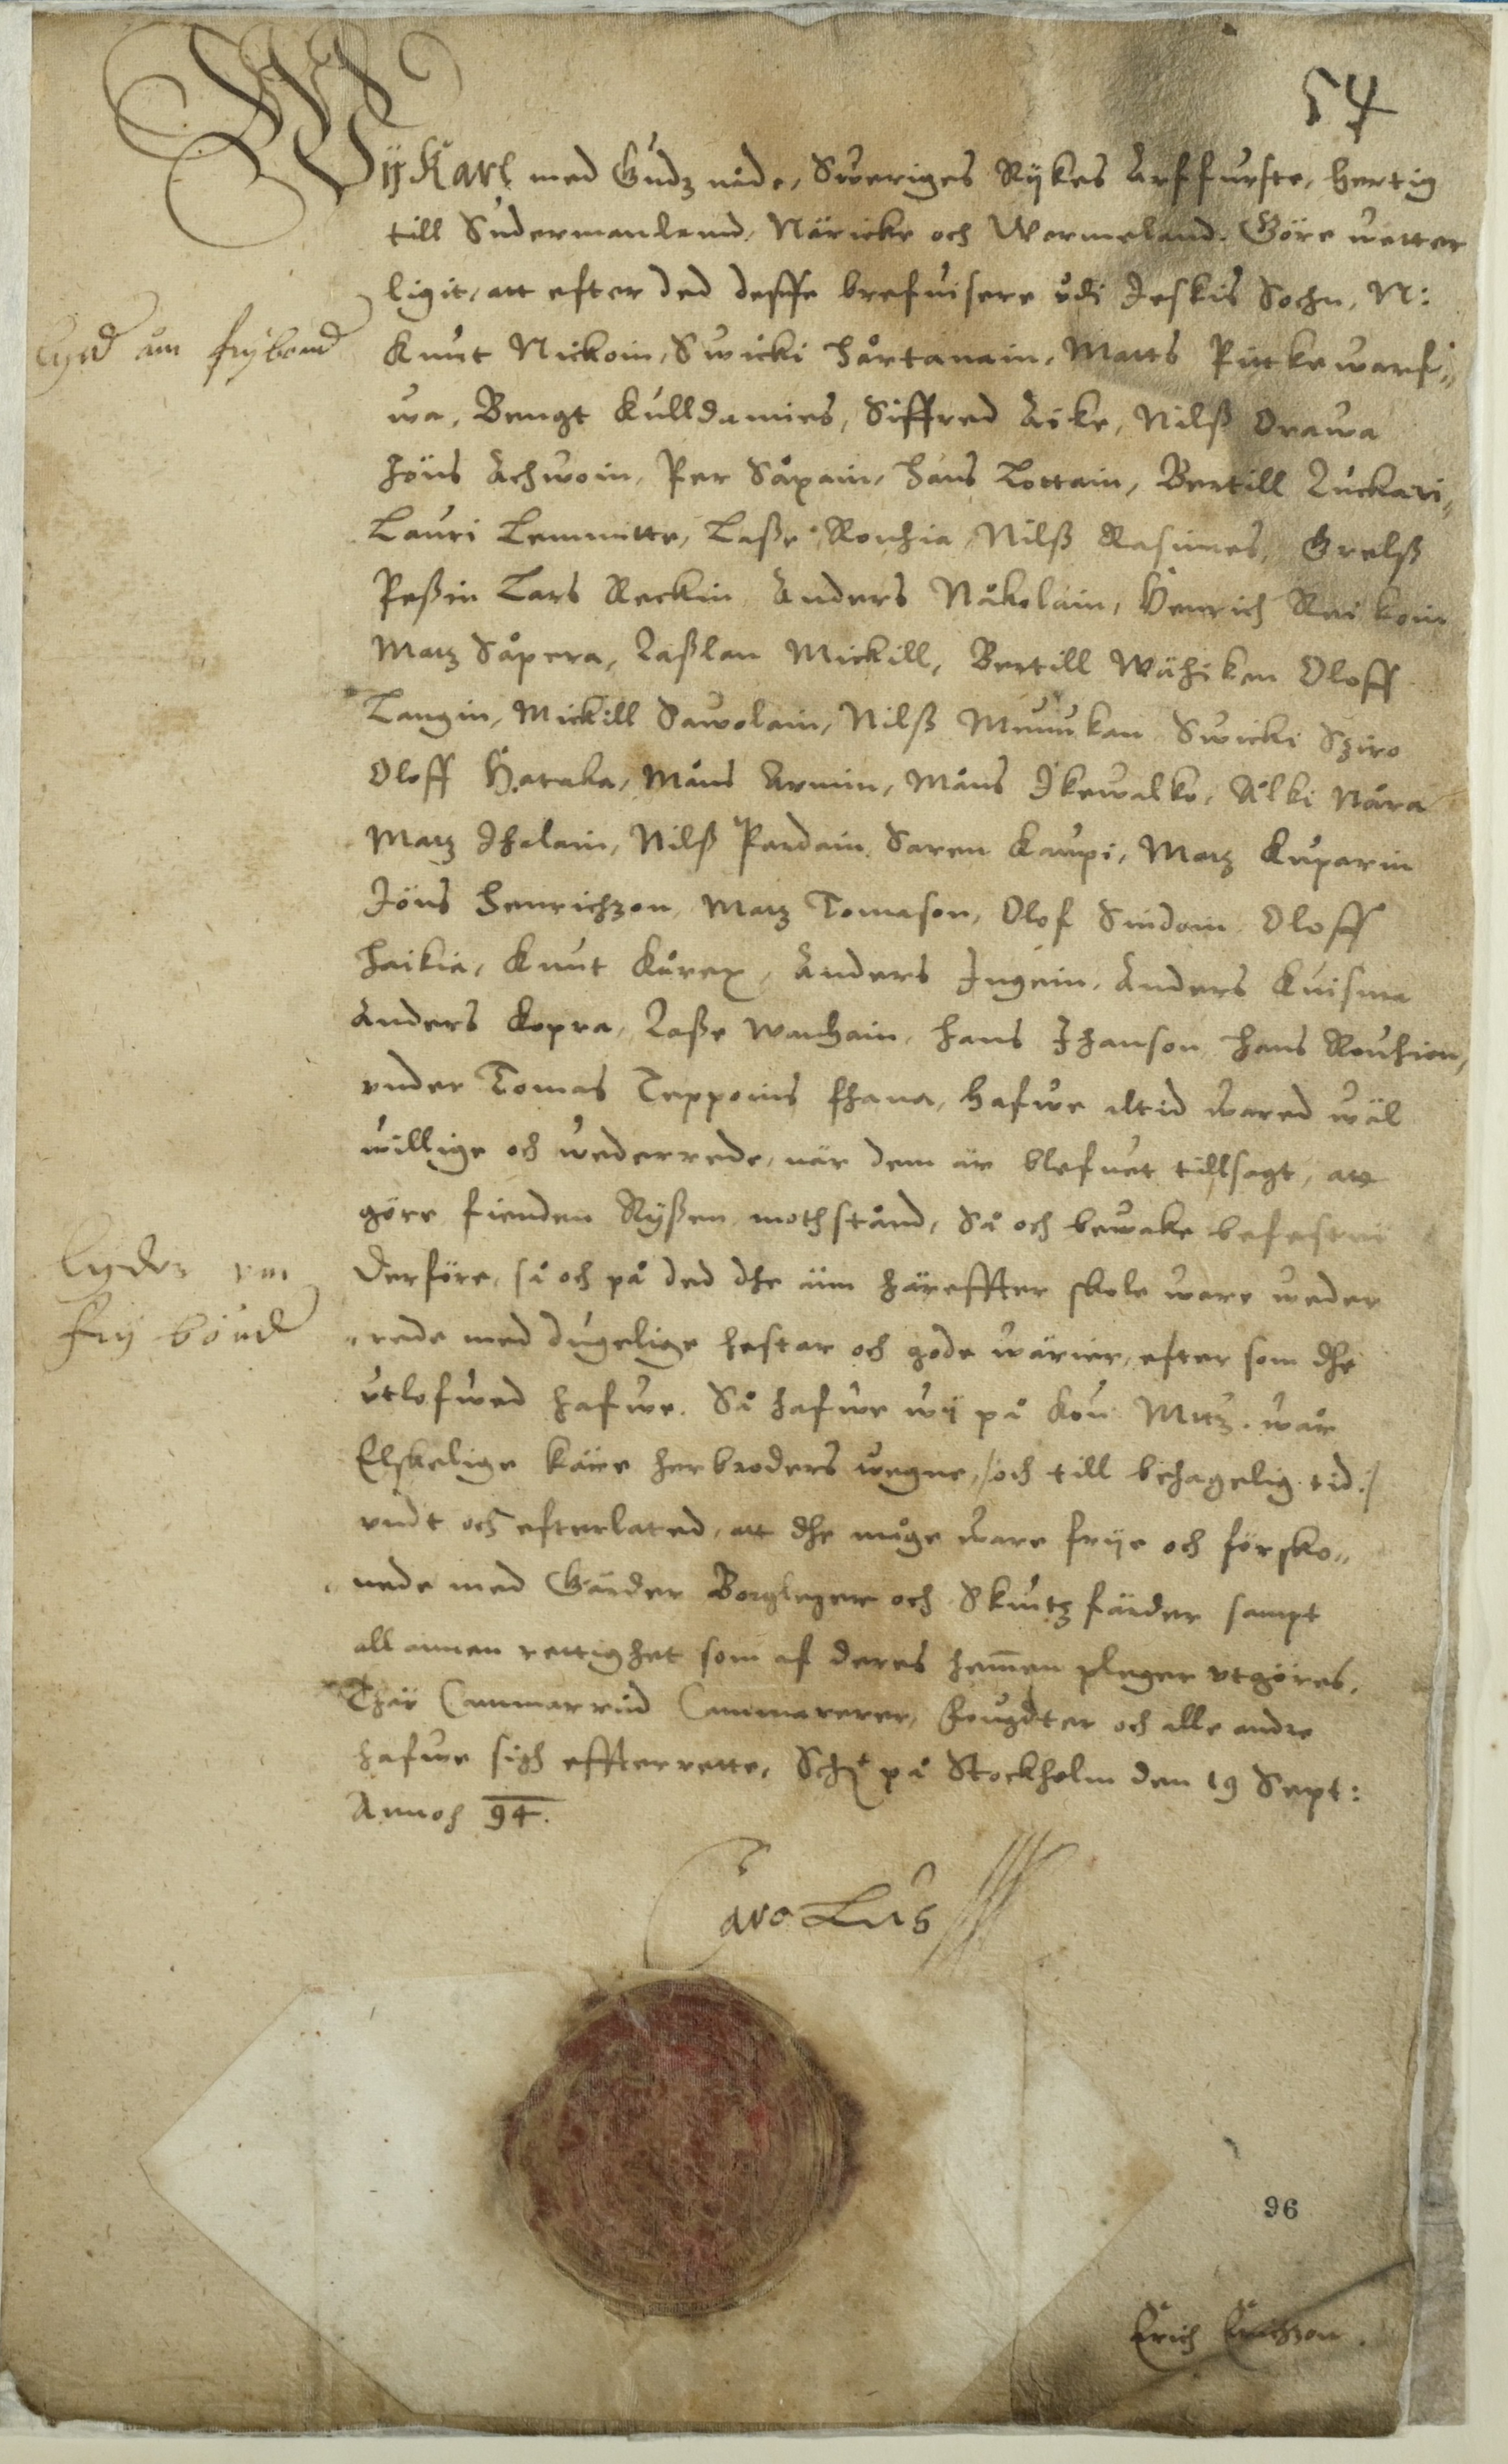 54
Wij Karl med Gudz nåde, Sweriges Rijkes Arffurste, hertig
till Sudermanland, Näricke och Wermeland. Göre wetter
ligit, att efter ded desse brefuisere udi Jeskis Sochn, N:
lyd um frybond
Knut Nickoin, Swicki Hårtanain, Matts Pittkewarf„
wa, Bengt Kulldamies, Siffred Äike, Nilß Orawa
Jöns Achwoin, Per Såpain, Hans Lottain, Bertill Zuckari„
Lauri Lemmitte, Laße Rouhia, Nilß Rasimes, Grelß
Peßin Lars Reckin Anders Nåkolain, Henrich Raikoin
Matz Såpera, Laßlan Mickill, Bertill Wähiken Oloff
Langin, Mickill Sawolain, Nilß Munukan Swicki Sziro
Oloff Hataka, Måns Armin, Måns Ikewalko, Ålki Nåra
Matz Ihalain, Nilß Pardain Saren Kaupi, Matz Kuparin
Jöns Henrichzon, Matz Tomason, Olof Sindoin Oloff
Haikia, Knut Kårex, Anders Ingein, Anders Kuisma
Anders Kopra, Laße Wanhain, Hans Ihanson Hans Rouhien,
under Tomas Tepponis fhana, hafwe altid wared wäl
willige och wederrede, när dem är blefuet tillsagt, att
göre fienden Ryßen mothstånd, Så och bewake befestni
lydes um
fry bönd
Derföre, så och på ded dhe äun häreffter skole ware weder
„rede med dugelige hestar och gode wärier, efter som dhe
utlofwed hafwe. Så hafwe wij på Kon: Mttz. wår
Elskelige käre her broders wegne, /och till behagelig tid:/
undt och efterlated, att dhe måge ware frije och försko„
„nede med Gärder Borgleger och Skutz färder sampt
all annen rettighet som af deres hemen pleger utgöres,
Thär Cammarråd Cammererer, Fougdter och alle andre
hafwe sigh effterrette, Scht på Stockholm den 19 Sept:
Annoh 94.
Carolus
96
Erich Erichzon.